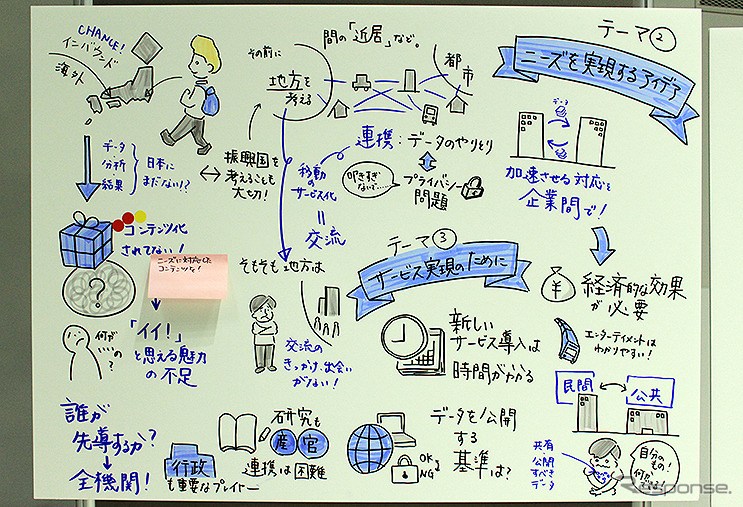 CHANCE!
インバウンド
海外
データ
分析
結果
日本に
まだない!?
コンテンツ化
されてない!
ニーズに対応した
コンテンツを!
?
何が
いいの?
「イイ!」
と思える魅力
の不足
誰が
先導するか?
全機関!
その前に
地方を
考える
間の「近居」など。
都市
振興国を
考えることも
大切!
移動
のサービス化
=
交流
連携:データのやりとり
叩きすぎ
ないで……
プライバシー
問題
テーマ②
ニーズを実現するアイデア
データ
加速させる対応を
企業間で!
経済的な効果
が必要
エンターテイメントは
わかりやすい!
民間
公共
共有
公開
すべき
データ
自分の
もの!
テーマ③
サービス実現のために
そもそも地方は
交流の
きっかけ、出会い
がない!
新しい
サービス導入は
時間がかかる
行政
も重要なプレイヤー
研究も
産官
連携は困難
データを公開
する
基準は?
OK
NG
Response.